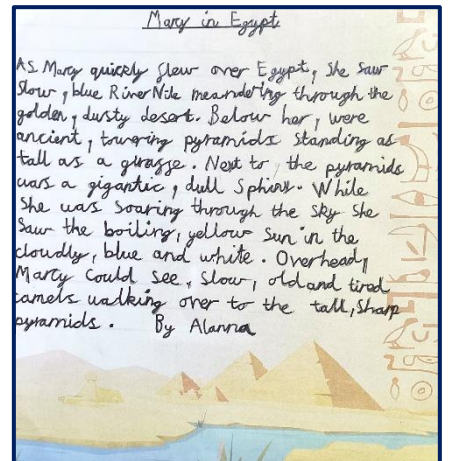 Marcy in Egypt
As Marcy quickly flew over Egypt, she saw
slow, blue River Nile meandering through the
golden, dusty desert. Below her, were
ancient, towering pyramids standing as
tall as a giraffe. Next to the pyramids
was a gigantic, dull Sphinx. While
she was soaring through the sky she
saw the boiling, yellow sun in the
cloudly, blue and white. Overhead,
Marcy could see, slow, old and tired
camels walking over to the tall, sharp
pyramids. By Alanna